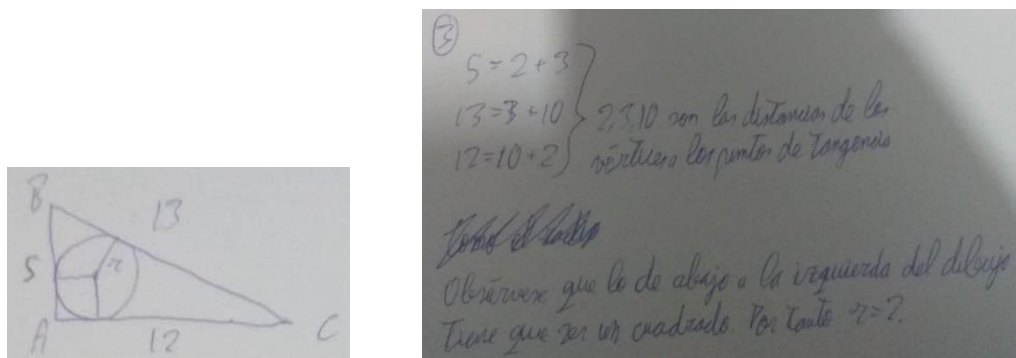 B
13
5
r
A
12
C
③
5 = 2 + 3
13 = 3 + 10
12 = 10 + 2
2, 3, 10 son las distancias de los
vértices a los puntos de tangencia
Obsérvese que lo de abajo a la izquierda del dibujo
tiene que ser un cuadrado. Por tanto r = 2.